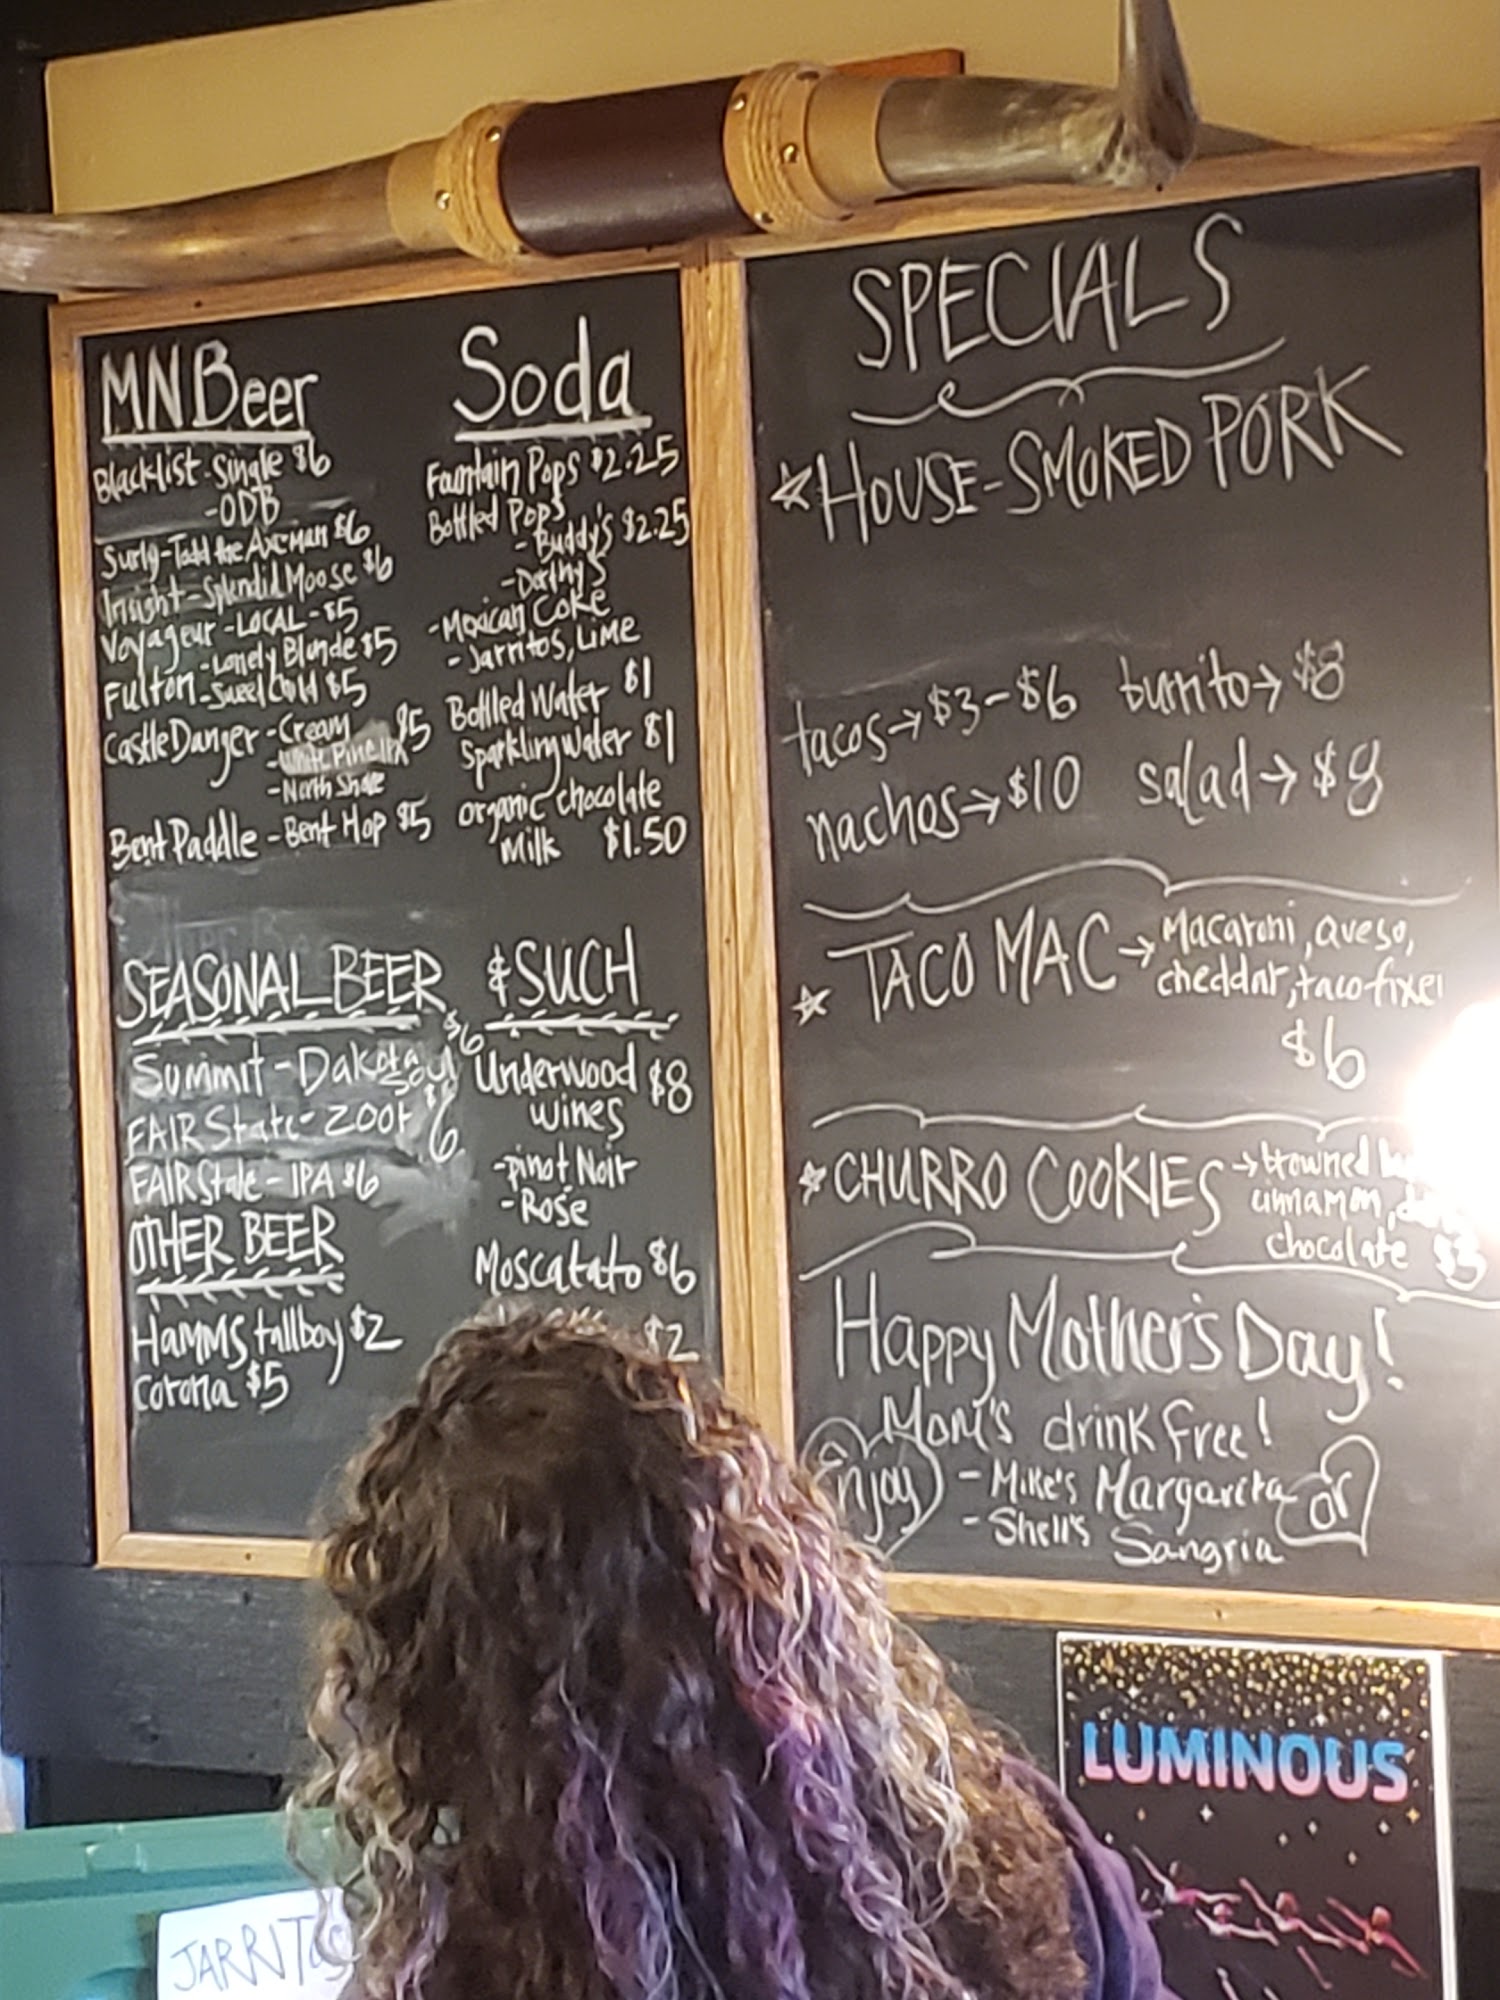 MN Beer
Blacklist-Single $6
-ODB
Surly-Todd the Axeman $6
Insight-Splendid Moose $6
Voyageur-LOCAL-$5
-Lonely Blonde $5
Fulton-Sweet Child $5
Castle Danger-Cream $5
-White Pine IPA
-North Shore
Bent Paddle-Bent Hop $5
SEASONAL BEER
$6
Summit-Dakota Soul
FAIR State- $6
FAIR State-IPA $6
OTHER BEER
HAMMS tallboy $2
Corona $5
Soda
Fountain Pops $2.25
Bottled Pops
-Buddy's $2.25
-Dorthy's
-Mexican Coke
-Jarritos, Lime
Bottled Water $1
Sparkling Water $1
organic chocolate
Milk $1.50
& SUCH
Underwood $8
wines
-pinot Noir
-Rose
Moscatato $6
$2
SPECIALS
HOUSE-SMOKED PORK
tacos→$3-$6 burrito→$8
nachos→$10 salad→$8
TACO MAC→Macaroni, queso,
cheddar, taco fixe
$6
CHURRO COOKIES→browned
cinnamon,
chocolate $3
Happy Mother's Day!
Mom's drink free!
enjoy -Mike's Margarita or
-Shell's Sangria
LUMINOUS
JARRITOS